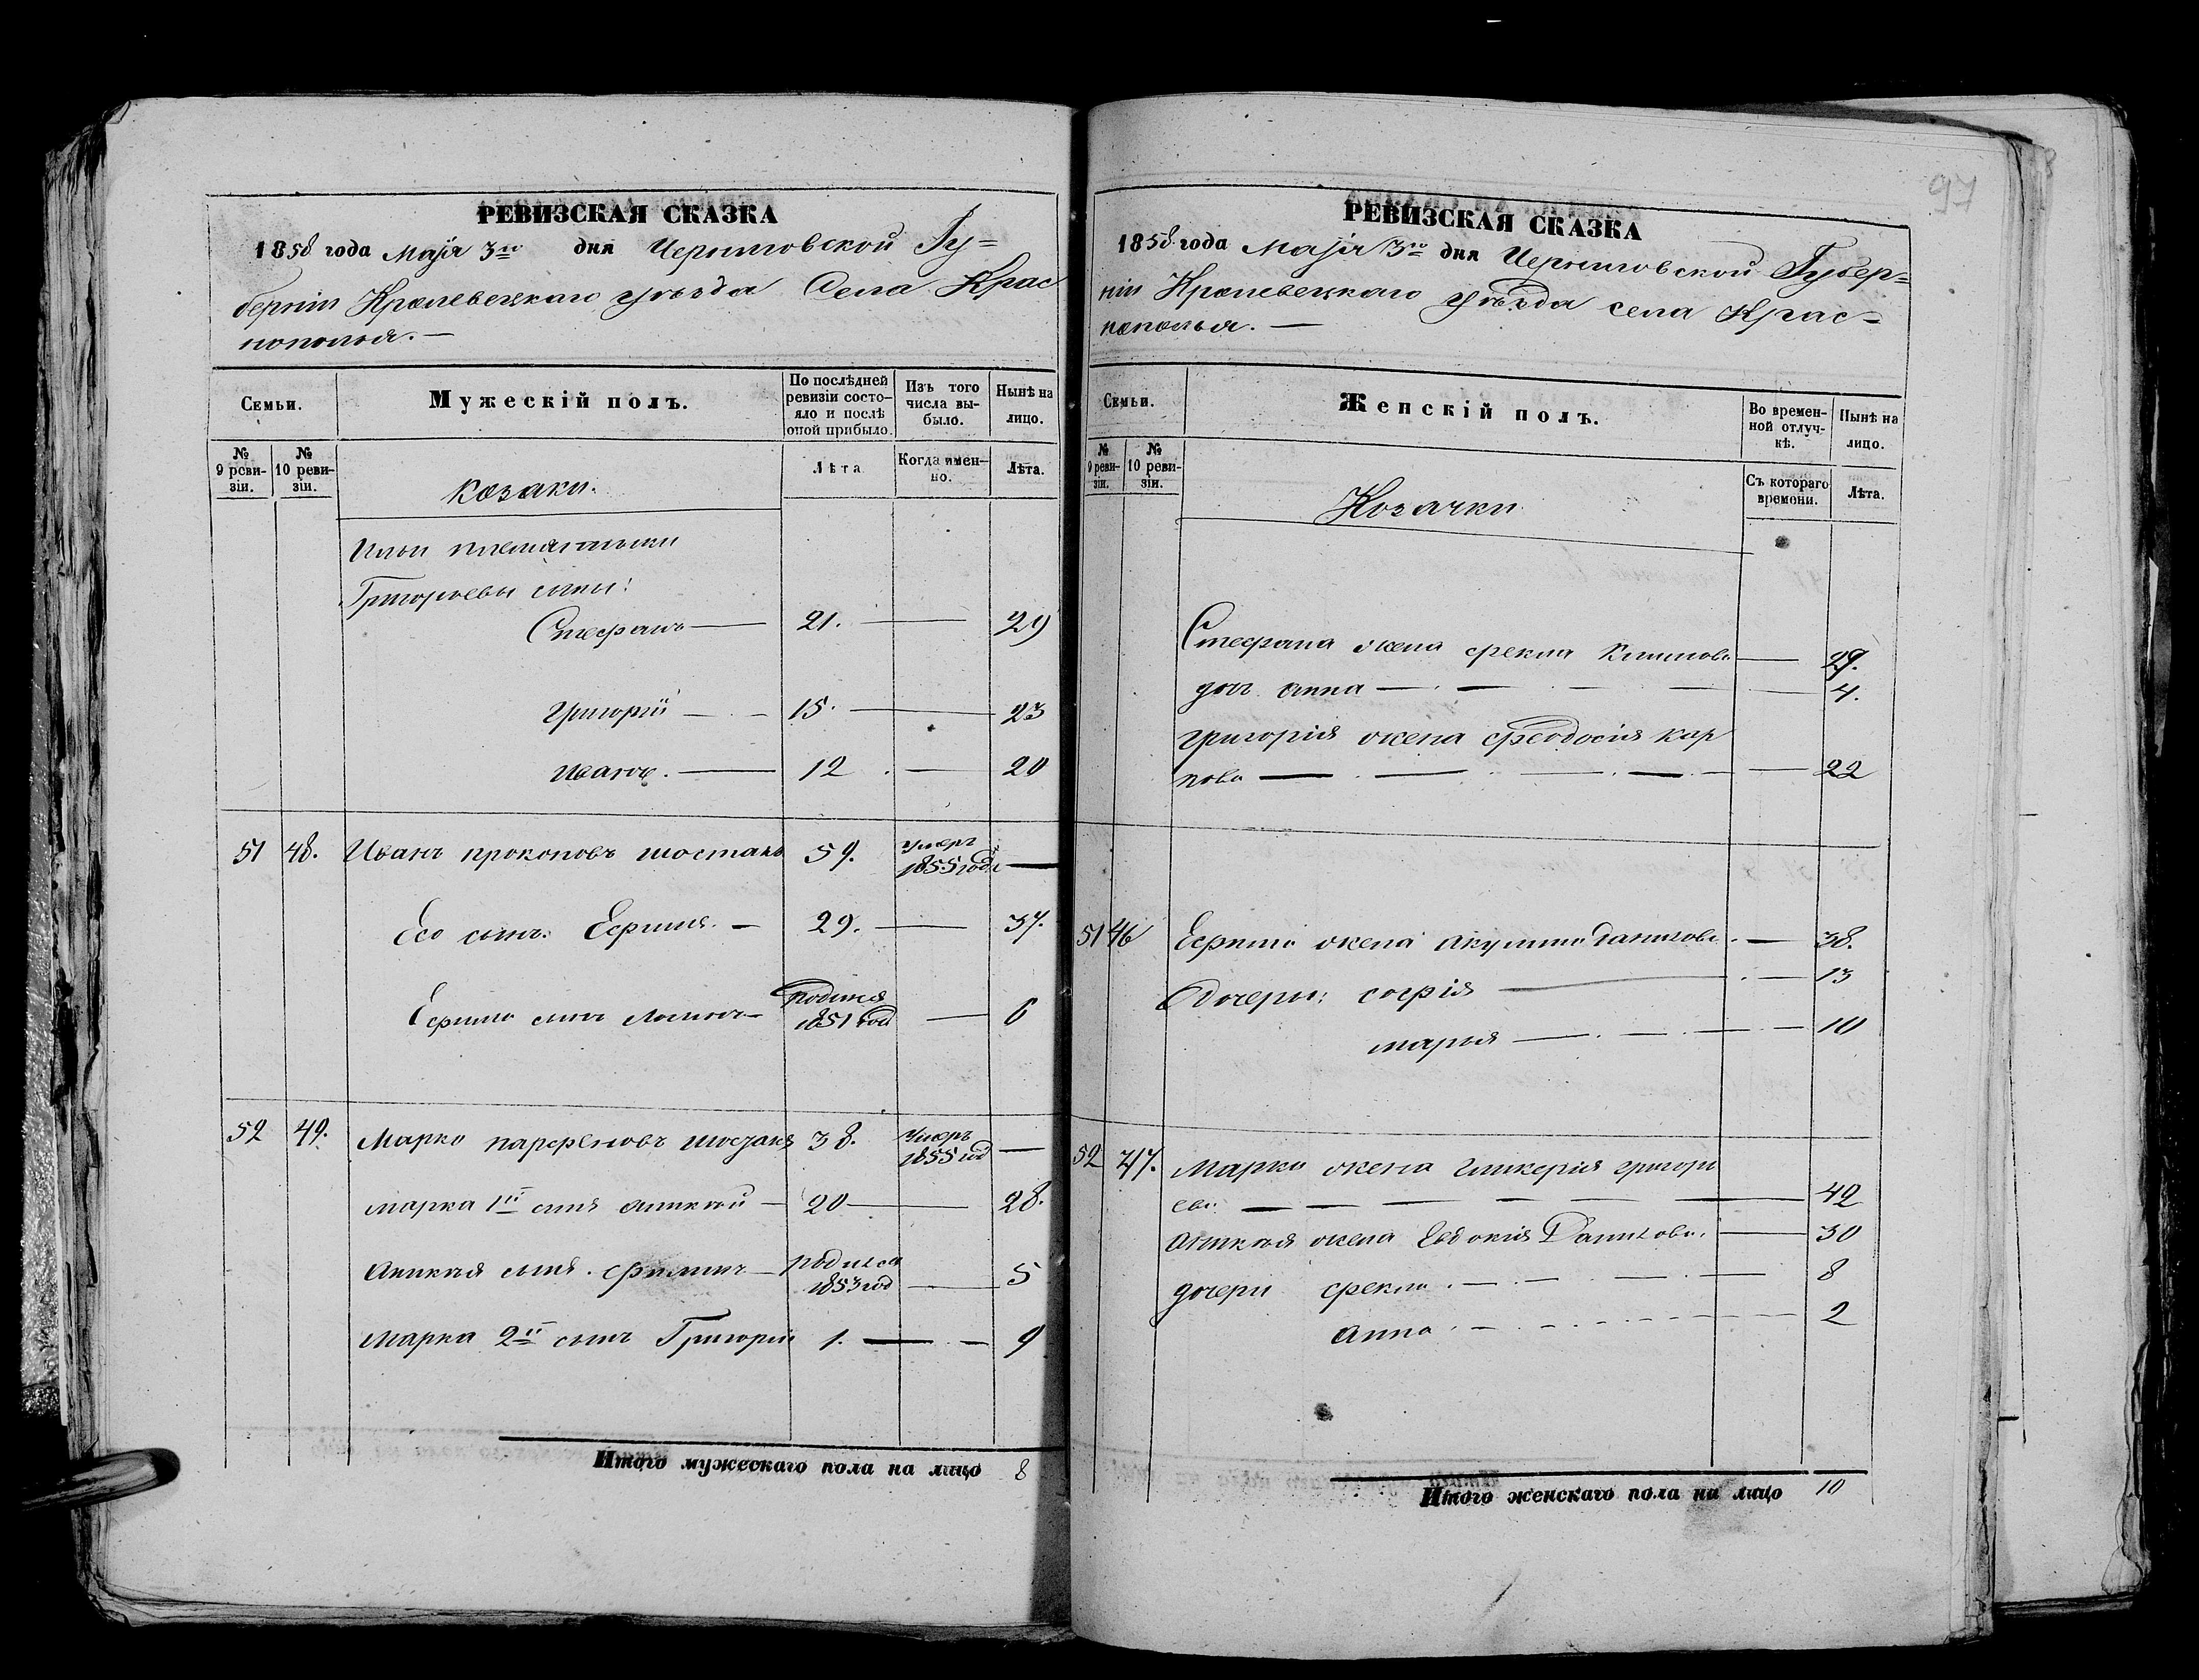 РЕВИЗСКАЯ СКАЗКА
1858 года Маія 3го дня Черниговской Гу=
берніи Кролевецкаго уѣзда Села Крас
нополья. —
Семьи.
Мужескій полъ.
По послѣдней ревизіи состояло и послѣ оной прибыло.
Изъ того числа выбыло.
Нынѣ на лицо.
№ 9 ревизіи.
№ 10 ревизіи.
Козаки.
Лѣта
Когда именно.
Лѣта.
Ильи племянники
Григорьевы сыны:
Стефанъ — 21. — 29
Григорій — 15. — 23
Иванъ. — 12. — 20
51 48. Иванъ прокоповъ шостакъ 59. Умеръ 1855 года —
Его сынъ: Ефимъ. — 29. — 37.
Ефима сынъ — родился 1851 год — 6
52 49. Марко парфеновъ 38. Умеръ 1855 год —
марка 1й сынъ аникѣй — 20 — 28.
Аникѣя сынъ. филипъ — родился 1853 год — 5
Марка 2й сынъ Григорій 1. — 9
Итого мужескаго пола на лицо 8
97
РЕВИЗСКАЯ СКАЗКА
1858 года Маія 3го дня Черниговской Губер=
ніи Кролевецкаго уѣзда села Крас=
нополья. —
Семьи.
Женскій полъ.
Во временной отлучкѣ.
Нынѣ на лицо.
№ 9 ревизіи.
№ 10 ревизіи.
Козачки
Съ котораго времени.
Лѣта.
Стефана жена фекла Климова — 29.
доч анна — 4.
григорія жена феодосія кар
пова — 22
51 46 Ефима жена акулина данилова. — 38.
Дочери: софія — 13
марья — 10
52 47. Марки жена гликерія григорі
ева — 42
аникѣя жена Евдокія Данилова. — 30
дочери фекла. — 8
Анна — 2
Итого женскаго пола на лицо 10